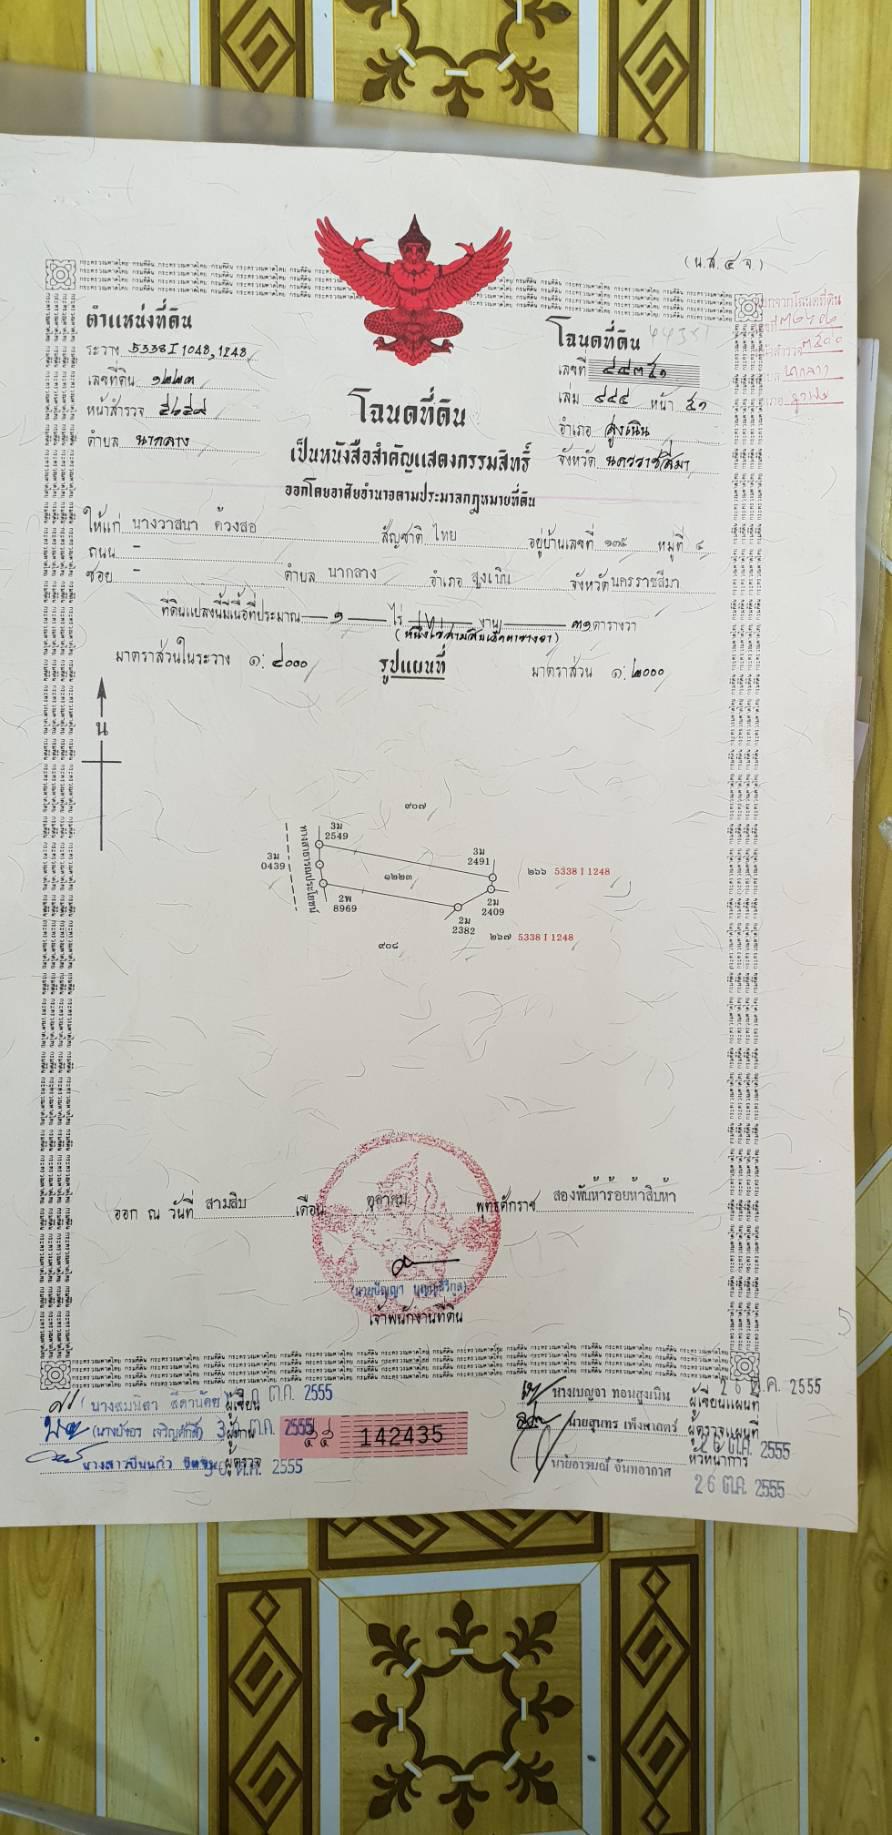 (น.ส.๔ จ)
ตำแหน่งที่ดิน
ระวาง 5338 I 1048, 1248
เลขที่ดิน ๑๒๒๓
หน้าสำรวจ
ตำบล นากลาง
โฉนดที่ดิน
เลขที่ ๔๔๓๕๑
เล่ม ๔๔๔ หน้า ๕๑
อำเภอ สูงเนิน
จังหวัด นครราชสีมา
โฉนดที่ดิน
เป็นหนังสือสำคัญแสดงกรรมสิทธิ์
ออกโดยอาศัยอำนาจตามประมวลกฎหมายที่ดิน
ให้แก่ นางวาสนา ด้วงสอ สัญชาติ ไทย อยู่บ้านเลขที่ ๑๓๕ หมู่ที่ ๔
ถนน -
ซอย - ตำบล นากลาง อำเภอ สูงเนิน จังหวัด นครราชสีมา
ที่ดินแปลงนี้มีเนื้อที่ประมาณ ๑ ไร่ งาน ๓๑ ตารางวา
(หนึ่งไร่สามสิบเอ็ดตารางวา)
มาตราส่วนในระวาง ๑: ๔๐๐๐ รูปแผนที่ มาตราส่วน ๑: ๒๐๐๐
น
๙๐๗
3ม 2549
3ม 0439
ทางสาธารณประโยชน์
๑๒๒๓
3ม 2491
๒๖๖ 5338 I 1248
2พ 8969
2ม 2409
2ม 2382
๒๖๗ 5338 I 1248
๙๐๘
ออก ณ วันที่ สามสิบ เดือน ตุลาคม พุทธศักราช สองพันห้าร้อยห้าสิบห้า
เจ้าพนักงานที่ดิน
ผู้เขียน ต.ค. 2555
(นางบังอร เจริญศักดิ์) ผู้ทาน ต.ค. 2555
ผู้ตรวจ ต.ค. 2555
142435
นางเบญจา ทอนสูงเนิน ผู้เขียนแผนที่ 26 ต.ค. 2555
นายสุนทร เพ็งศาสตร์ ผู้ตรวจแผนที่ 26 ต.ค. 2555
นายอารมณ์ จันทอากาศ หัวหน้าการ 26 ต.ค. 2555